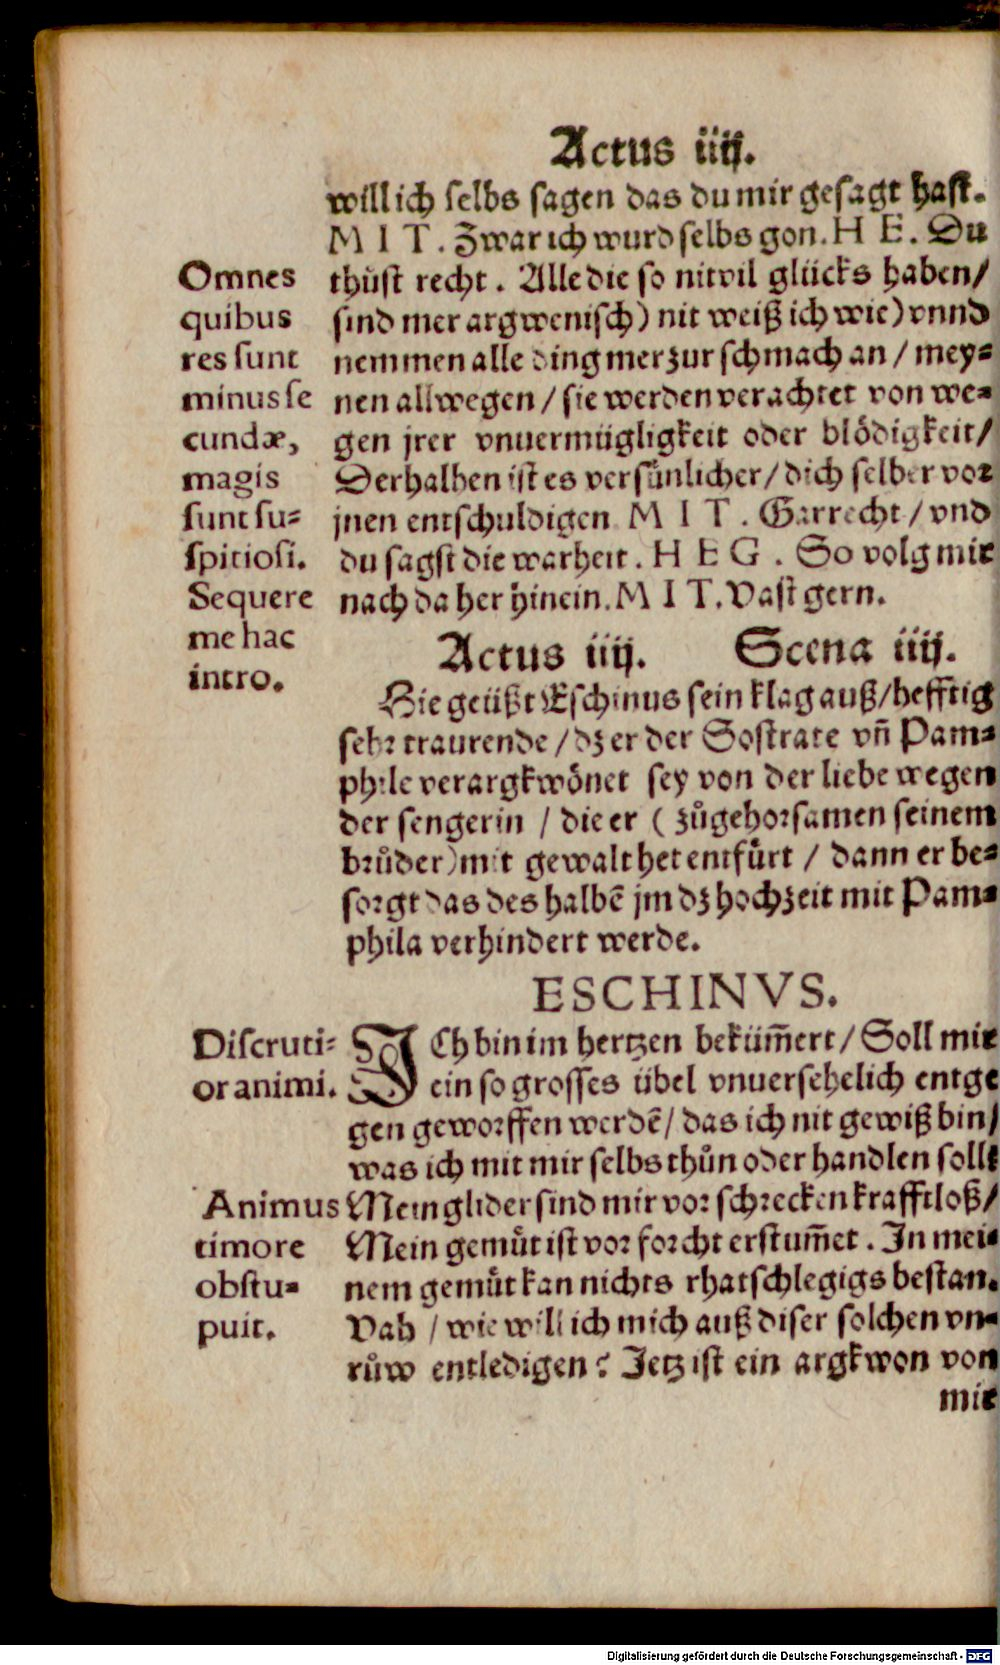 Actus iiij.
will ich selbs sagen das du mir gesagt hast.
M I T. Zwar ich wurd selbs gon. H E. Du
thůst recht. Alle die so nit vil glücks haben/
sind mer argwenisch) nit weiß ich wie) vnnd
nemmen alle ding mer zur schmach an / mey⸗
nen allwegen / sie werden verachtet von we⸗
gen jrer vnuermügligkeit oder blödigkeit/
Derhalben ist es versünlicher/ dich selber vor
jnen entschuldigen M I T. Gar recht / vnd
du sagst die warheit. H E G. So volg mir
nach da her hinein. M I T. Vast gern.
Omnes
quibus
res sunt
minus se
cundæ,
magis
sunt su⸗
spitiosi.
Sequere
me hac
intro.
Actus iiij. Scena iiij.
Hie geüßt Eschinus sein klag auß/hefftig
sehr traurende / dz er der Sostrate vñ Pam⸗
phile verargkwönet sey von der liebe wegen
der sengerin / die er ( zůgehorsamen seinem
brůder) mit gewalt het entfürt / dann er be⸗
sorgt das des halbē jm dz hochzeit mit Pam⸗
phila verhindert werde.
ESCHINVS.
Discruti⸗
or animi.
ICh bin im hertzen beküm̄ert/ Soll mir
ein so grosses übel vnuersehelich entge
gen geworffen werdē/ das ich nit gewiß bin/
was ich mit mir selbs thůn oder handlen soll:
Mein glider sind mir vor schrecken krafftloß/
Mein gemüt ist vor forcht erstum̄et. In mei⸗
nem gemüt kan nichts rhatschlegigs bestan.
Vah / wie will ich mich auß diser solchen vn⸗
růw entledigen? Jetz ist ein argkwon von
Animus
timore
obstu⸗
puit.
mir
Digitalisierung gefördert durch die Deutsche Forschungsgemeinschaft - DFG